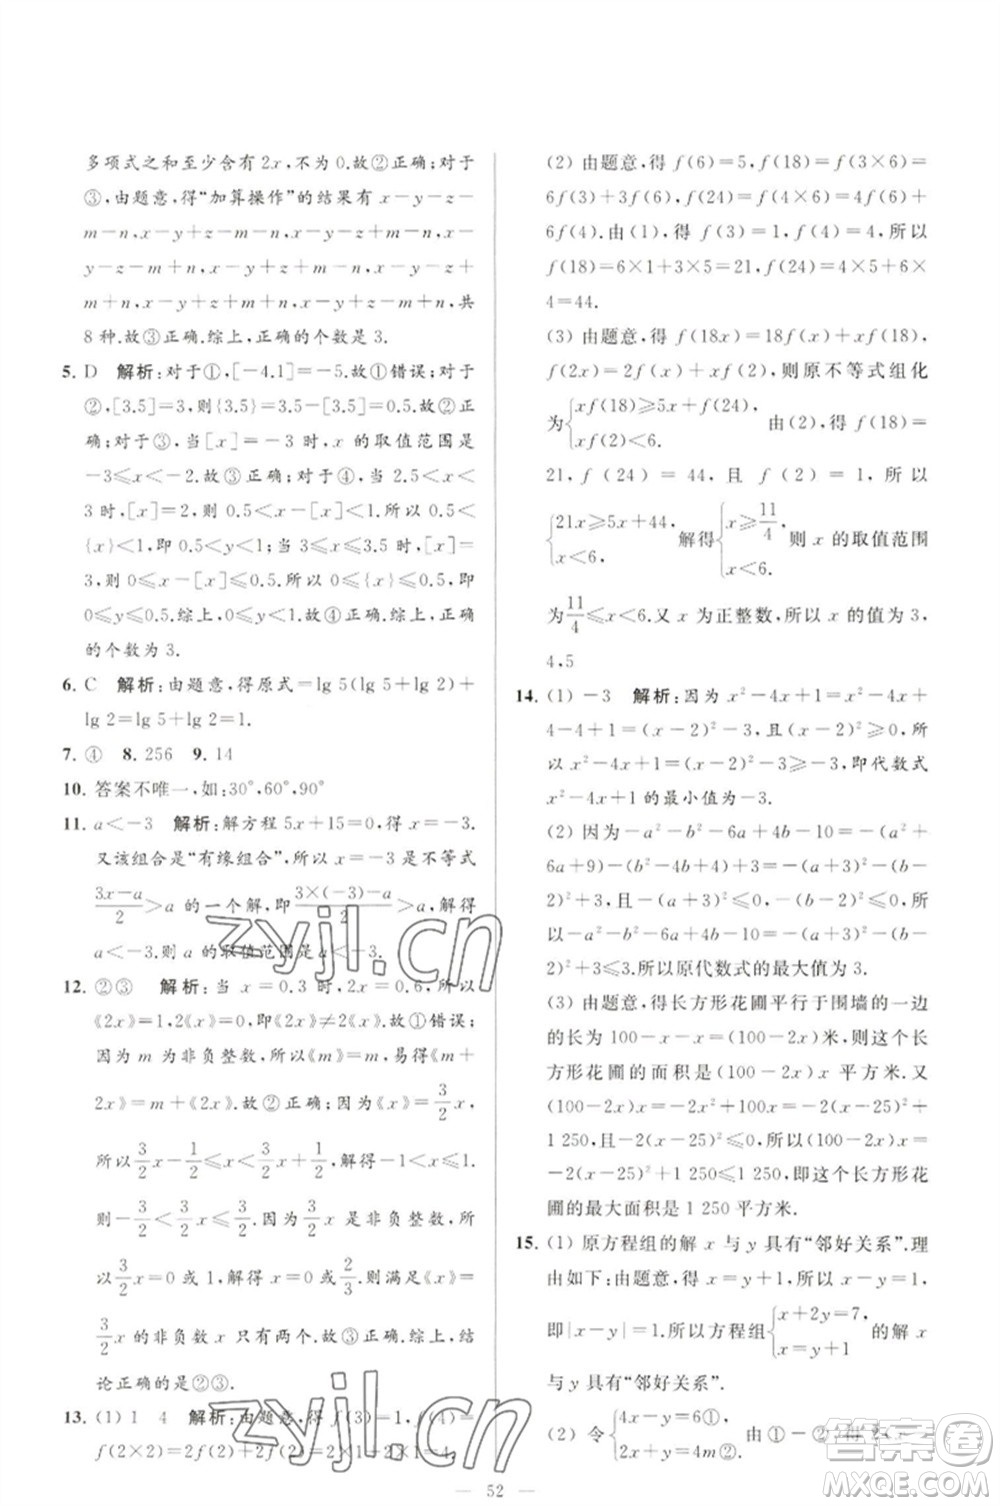 多项式之和至少含有2x,不为0.故②正确;对于
③,由题意,得“加算操作”的结果有x-y-z-
m-n,x-y+z-m-n,x-y-z+
m-n,x-y+z+m-n,x-
y-z-m+n,x-y+z-
m+n,x-y-z+m+n,x-y+z+m+n,共
8种.故③正确.综上,正确的个数是3.
5. D 解析:对于①,[-4.1]=-5.故①错误;对于
②,[3.5]=3,则{3.5}=3.5-[3.5]=0.5.故②正
确;对于③,当[x]=-3时,x的取值范围是
-3≤x<-2.故③正确;对于④,当2.5<x<
3时,[x]=2,则0.5<x-[x]<1.所以0.5<
{x}<1,即0.5<y<1;当3≤x≤3.5时,[x]=
3,则0≤x-[x]≤0.5.所以0≤{x}≤0.5,即
0≤y≤0.5.综上,0≤y<1.故④正确.综上,正确
的个数为3.
6. C 解析:由题意,得原式=lg 5(lg 5+lg 2)+
lg 2=lg 5+lg 2=1.
7. ④ 8. 256 9. 14
10. 答案不唯一,如:30°,60°,90°
11. a<-3 解析:解方程5x+15=0,得x=-3.
又该组合是“有缘组合”,所以x=-3是不等式
\frac{3x-a}{2}>a的一个解,即\frac{3×(-3)-a}{2}>a,解得
a<-3.则a的取值范围是a<-3.
12. ②③ 解析:当x=0.3时,《x》=0,所以
《2x》=1,2《x》=0,即《2x》≠2《x》.故①错误;
因为m为非负整数,所以《m》=m,易得《m+
2x》=m+《2x》.故②正确;因为《x》=\frac{3}{2}x,
所以\frac{3}{2}x-\frac{1}{2}≤x<\frac{3}{2}x+\frac{1}{2},解得-1<x≤1.所
以-\frac{3}{2}<\frac{3}{2}x≤\frac{3}{2}.因为\frac{3}{2}x是非负整数,所
以\frac{3}{2}x=0或1,解得x=0或\frac{2}{3}.则满足《x》=
\frac{3}{2}x的非负数x只有两个.故③正确.综上,结
论正确的是②③.
13. (1) 1 4 解析:由题意,得f(3)=1,f(4)=
f(2×2)=2f(2)+2f(2)=2+2=4.
(2) 由题意,得f(6)=5,f(18)=f(3×6)=
6f(3)+3f(6),f(24)=f(4×6)=4f(6)+
6f(4).由(1),得f(3)=1,f(4)=4,所以
f(18)=6×1+3×5=21,f(24)=4×5+6×4
=44.
(3) 由题意,得f(18x)=18f(x)+xf(18),
f(2x)=2f(x)+xf(2),则原不等式组化
为{xf(18)≥5x+f(24), xf(2)<6. 由(2),得f(18)=
21,f(24)=44,且f(2)=1,所以
{21x≥5x+44, x<6. 解得{x≥\frac{11}{4}, x<6. 则x的取值范围
为\frac{11}{4}≤x<6.又x为正整数,所以x的值为3,
4,5
14. (1) -3 解析:因为x²-4x+1=x²-4x+
4-4+1=(x-2)²-3,(x-2)²≥0,所
以x²-4x+1=(x-2)²-3≥-3,即代数式
x²-4x+1的最小值为-3.
(2) 因为-a²-b²-6a+4b-10=-(a²+
6a+9)-(b²-4b+4)+3=-(a+3)²-(b-
2)²+3,-(a+3)²≤0,-(b-2)²≤0,所
以-a²-b²-6a+4b-10=-(a+3)²-(b-2)²
+3≤3.所以原代数式的最大值为3.
(3) 由题意,得长方形花圃平行于围墙的一边
的长为100-x-x=(100-2x)米,则这个长
方形花圃的面积是(100-2x)x平方米.又
(100-2x)x=-2x²+100x=-2(x-25)²+
1 250,-2(x-25)²≤0,所以(100-2x)x=
-2(x-25)²+1 250≤1 250,即这个长方形花
圃的最大面积是1 250平方米.
15. (1) 原方程组的解x与y具有“邻好关系”.理
由如下:由题意,得x=y+1,所以x-y=1,
即|x-y|=1.所以方程组{x+2y=7, x=y+1 的解x
与y具有“邻好关系”.
(2) 令{4x-y=6①, 2x+y=4m②, 由①-②×2
zyjl.cn
zyjl.cn
52
答案圈
MXQE.COM